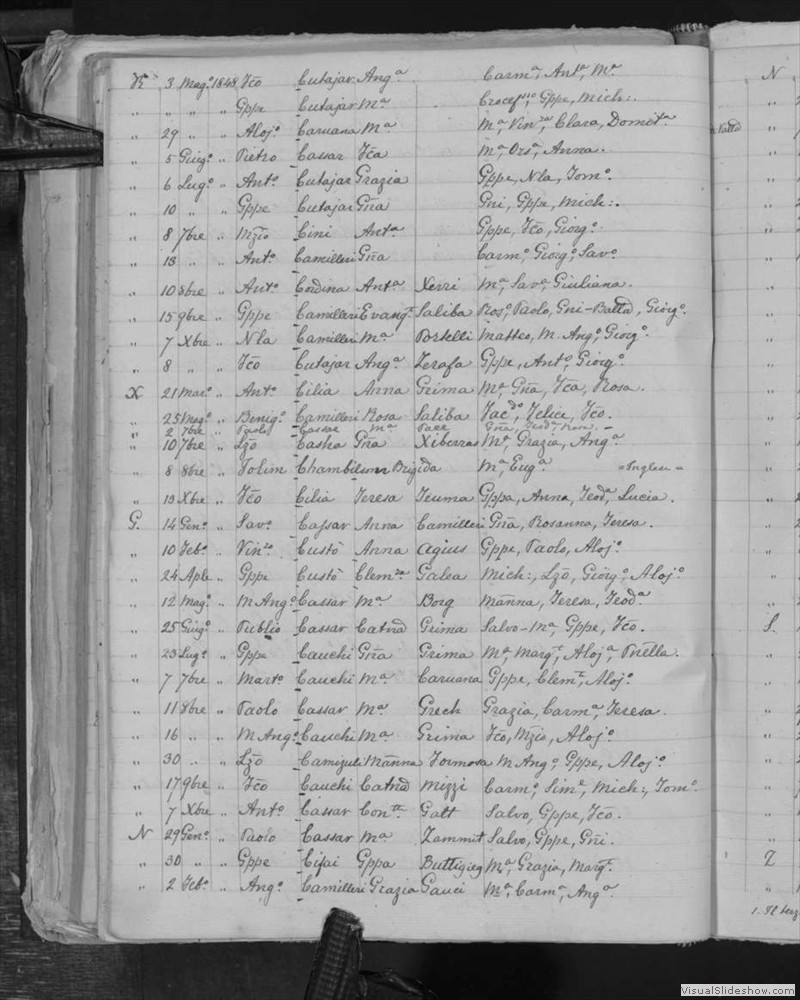 K 3 Magº 1848 Fcõ Cutajar Angª Carmª, Antª, Mª
" " " " Gppe Cutajar Mª Crocefsso, Gppe, Mich:.
" 29 " " Alojº Caruana Mª Mª, Vinza, Clara, Dometª
" 5 Giugº " Pietro Cassar Fca Mª, Orsª, Anna.
" 6 Lugº " Antº Cutajar Grazia Gppe, Nla, Tomº.
" 10 " " Gppe Cutajar Gña Gni, Gppe, Mich:.
" 8 7bre " Mzio Cini Antª Gppe, Fcõ, Giorgº.
" 13 " " Antº Camilleri Gña Carmº, Giorgº, Savº.
" 10 8bre " Antº Cordina Antª Xerri Mª, Savª, Giuliana.
" 15 9bre " Gppe Camilleri Evangª Saliba Rosº, Paolo, Gni-Batta, Giorgº.
" 7 Xbre " Nla Camilleri Mª Portelli Matteo, M. Angº, Giorgº.
" 8 " " Fcõ Cutajar Angª Zerafa Gppe, Antº, Giorgº.
X 21 Marº " Antº Cilia Anna Grima Mª, Gña, Fca, Rosa.
" 25 Magº " Benigº Camilleri Rosa Saliba Facdº, Felice, Fcõ.
" 2 7bre " Paolo Cassar Mª Pace Gña, Teodª, Rosa. -
" 10 7bre " Lzõ Casha Gña Xiberras Mª, Grazia, Angª
" 8 8bre " Chambilson Brigida Mª, Eugª = Inglese =
" 13 Xbre " Fcõ Cilia Teresa Teuma Gppa, Anna, Teodª, Lucia.
G. 14 Genº " Savº Cassar Anna Camilleri Gña, Rosanna, Teresa.
" 10 Febº " Vinzo Custò Anna Agius Gppe, Paolo, Alojº
" 24 Aple " Gppe Custò Clemza Galea Mich:, Lzõ, Giorgº, Alojº
" 12 Magº " M Angº Cassar Mª Borg Mãnna, Teresa, Teodª
" 25 Giugº " Publio Cassar Catna Grima Salvo-Mª, Gppe, Fcõ.
" 23 Lugº " Gppe Cauchi Gña Grima Mª, Margª, Alojª, Prella.
" 7 7bre " Martº Cauchi Mª Caruana Gppe, Clemte, Alojº
" 11 8bre " Paolo Cassar Mª Grech Grazia, Carmª, Teresa.
" 16 " " M Angº Cauchi Mª Grima Fcõ, Mzio, Alojº
" 30 " " Lzõ Camizuli Mãnna Formosa M Angº, Gppe, Alojº.
" 17 9bre " Fcõ Cauchi Catna Mizzi Carmº, Simº, Mich:, Tomº.
" 7 Xbre " Antº Cassar Contta Gatt Salvo, Gppe, Fcõ.
N 29 Genº " Paolo Cassar Mª Zammit Salvo, Gppe, Gñi.
" 30 " " Gppe Cifai Gppa Buttigieg Mª, Grazia, Margª.
" 2 Febº " Angº Camilleri Grazia Gauci Mª, Carmª, Angª
N
S.
Z
VisualSlideshow.com